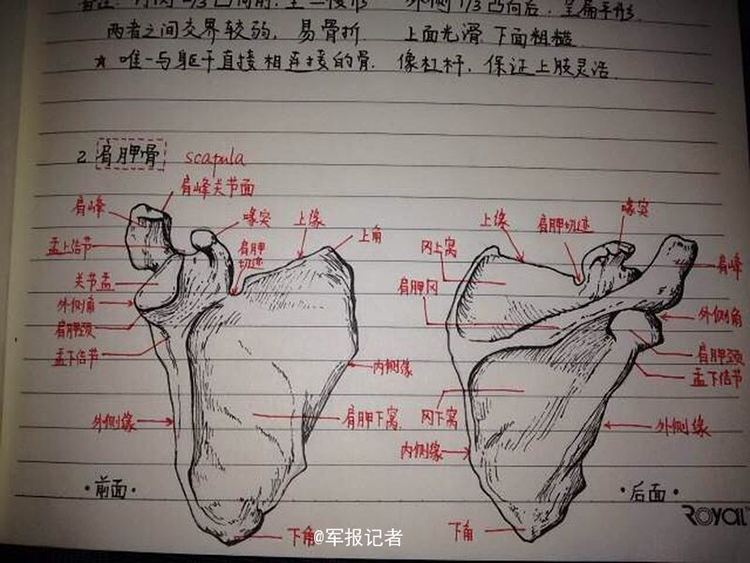 两者之间交界较弱, 易骨折. 上面光滑 下面粗糙.
★ 唯一与躯干直接相连接的骨. 像杠杆, 保证上肢灵活
2. 肩胛骨 scapula
肩峰关节面
肩峰
喙突
上缘
上角
盂上结节
肩胛切迹
关节盂
外侧角
肩胛颈
盂下结节
内侧缘
外侧缘
肩胛下窝
·前面·
下角
上缘
肩胛切迹
喙突
冈上窝
肩峰
肩胛冈
外侧角
肩胛颈
盂下结节
冈下窝
外侧缘
内侧缘
·后面·
下角
ROYAL
@军报记者